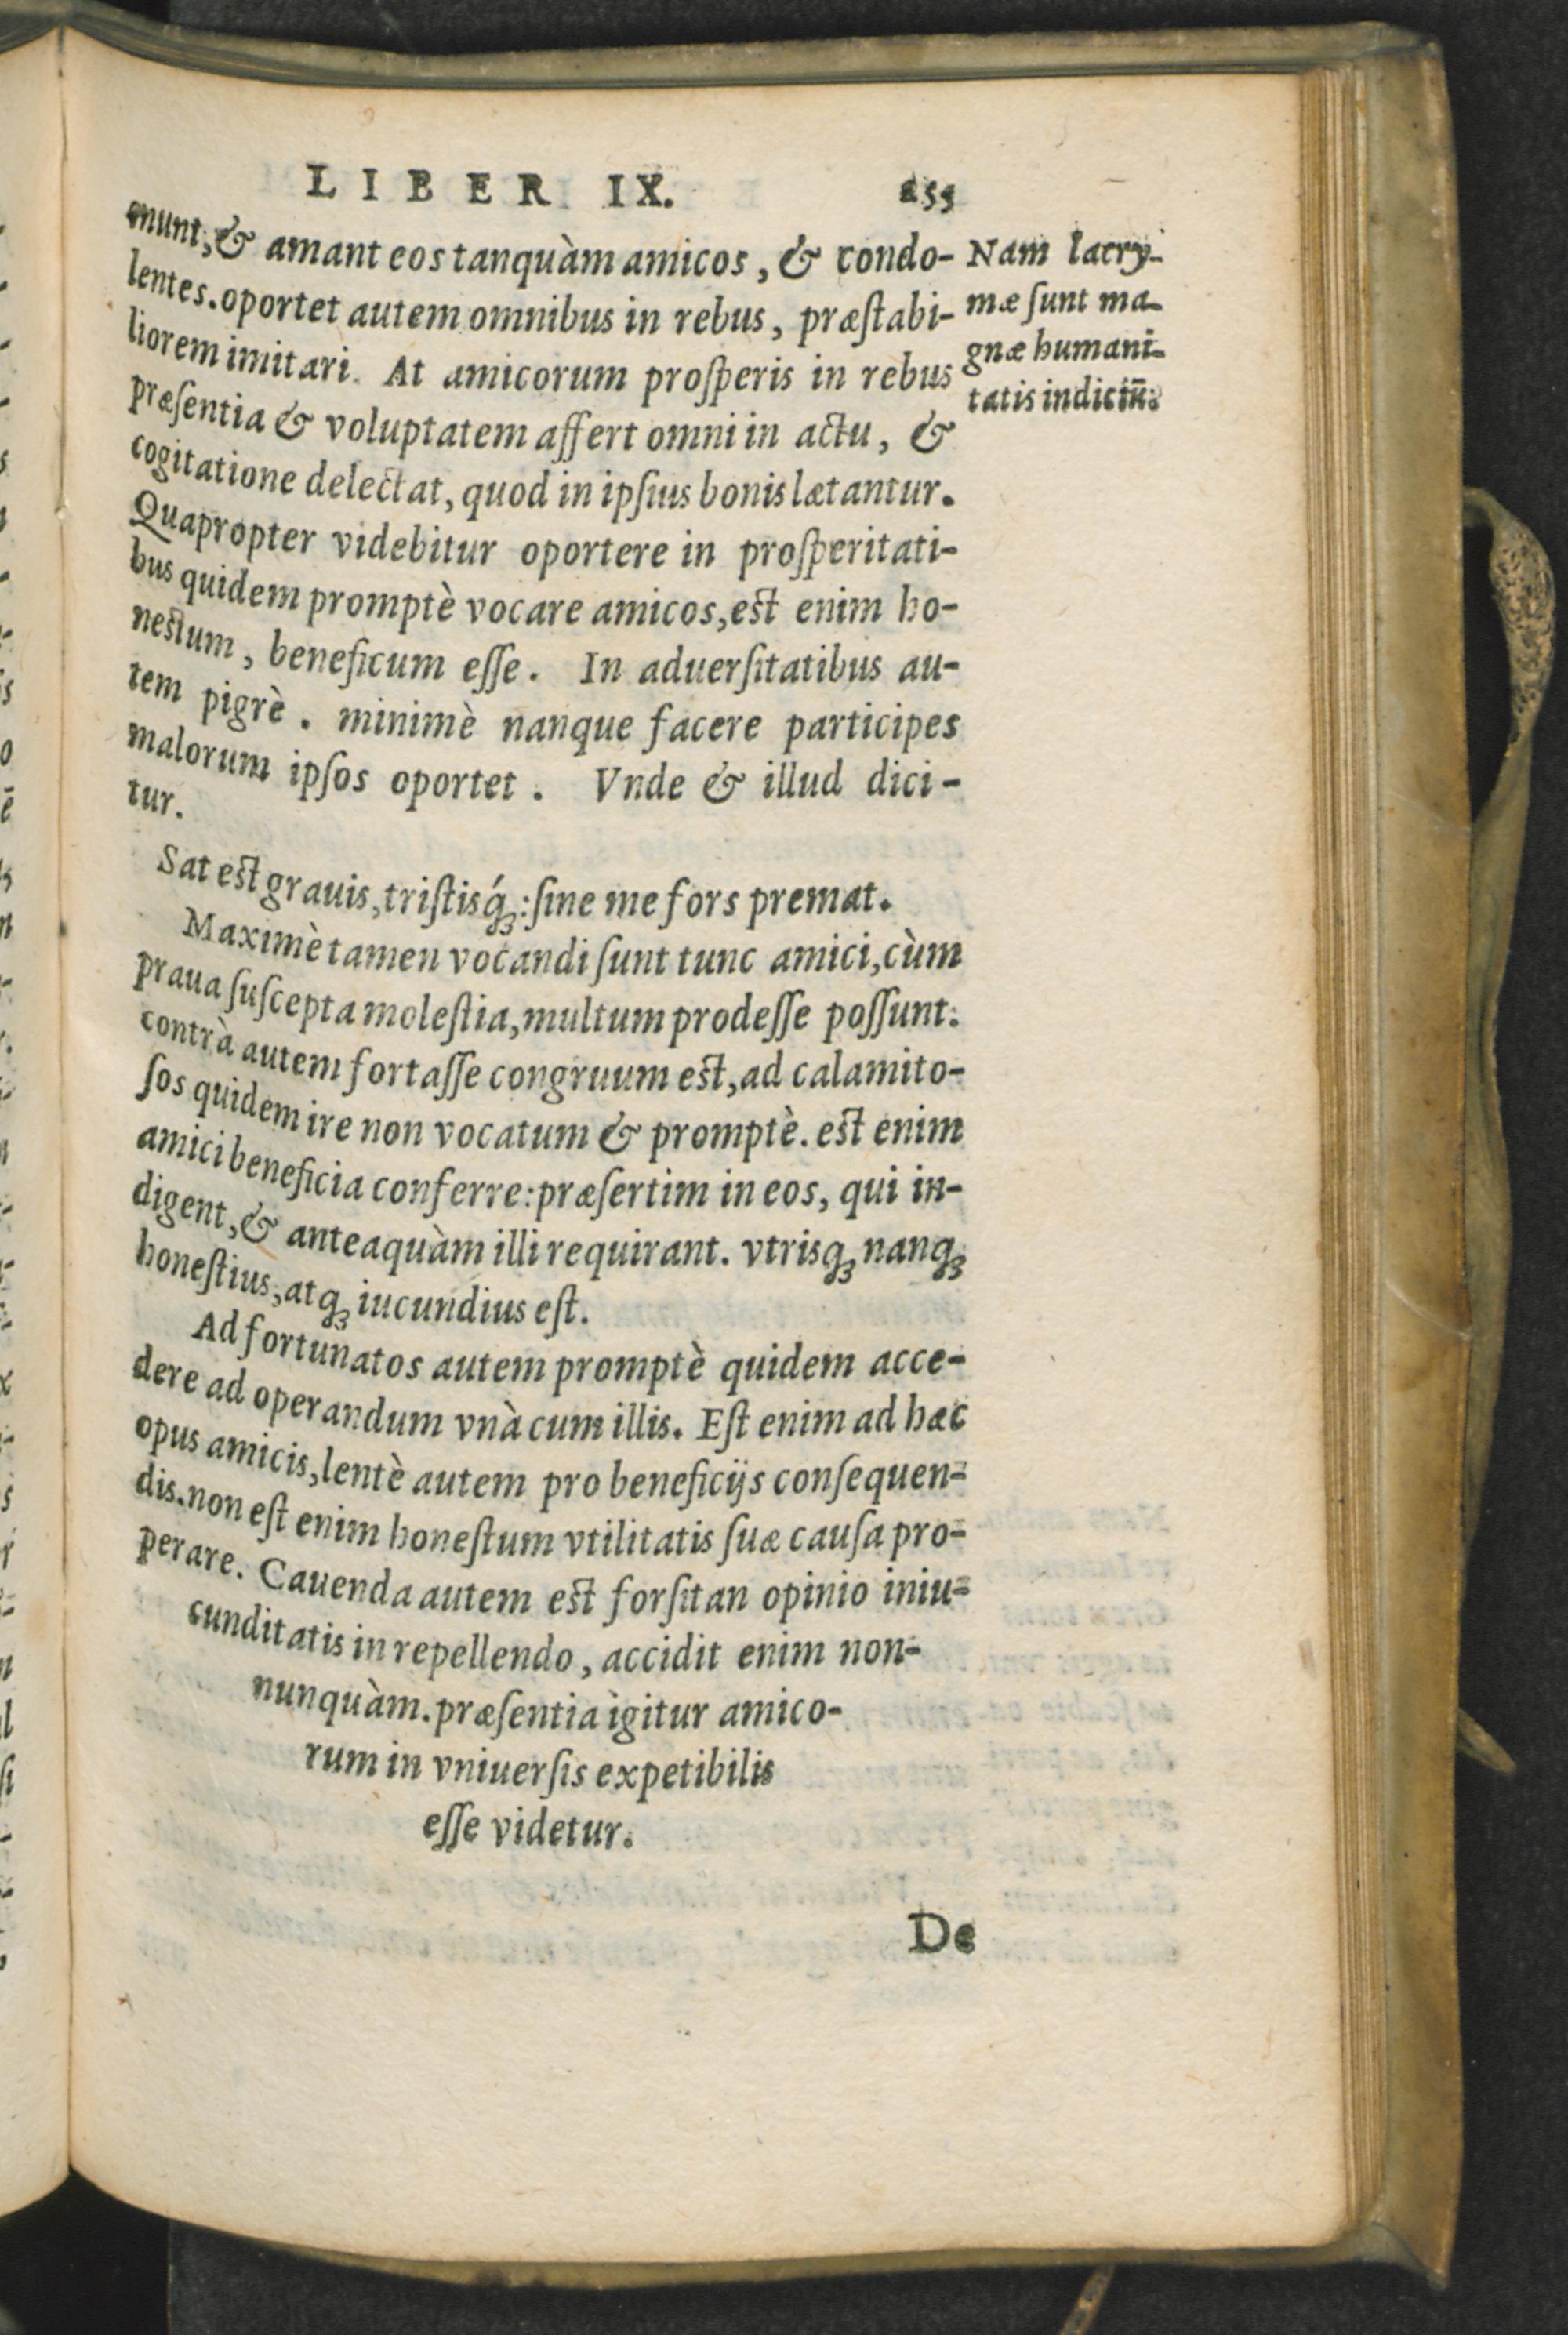 LIBER IX. 255
munt, & amant eos tanquàm amicos, & condo-
lentes. oportet autem omnibus in rebus, præſtabi-
liorem imitari. At amicorum proſperis in rebus
præſentia & voluptatem affert omni in actu, &
cogitatione delectat, quod in ipſius bonis lætantur.
Quapropter videbitur oportere in proſperitati-
bus quidem promptè vocare amicos, est enim ho-
nestum, beneficum eſſe. In aduerſitatibus au-
tem pigrè. minimè nanque facere participes
malorum ipſos oportet. Vnde & illud dici-
tur.
Sat est grauis, triſtisq́ꝫ: ſine me fors premat.
Maximè tamen vocandi ſunt tunc amici, cùm
praua ſuſcepta moleſtia, multum prodeſſe poſſunt.
contrà autem fortaſſe congruum est, ad calamito-
ſos quidem ire non vocatum & promptè. est enim
amici beneficia conferre: præſertim in eos, qui in-
digent, & anteaquàm illi requirant. vtrisqꝫ nanqꝫ
honeſtius, atqꝫ iucundius eſt.
Ad fortunatos autem promptè quidem acce-
dere ad operandum vnà cum illis. Eſt enim ad hæc
opus amicis, lentè autem pro beneficijs conſequen-
dis. non eſt enim honeſtum vtilitatis ſuæ cauſa pro-
perare. Cauenda autem est forſitan opinio iniu-
cunditatis in repellendo, accidit enim non-
nunquàm. præſentia ìgitur amico-
rum in vniuerſis expetibilis
eſſe videtur.
De
Nam lacry-
mæ ſunt ma-
gnæ humani-
tatis indiciū.